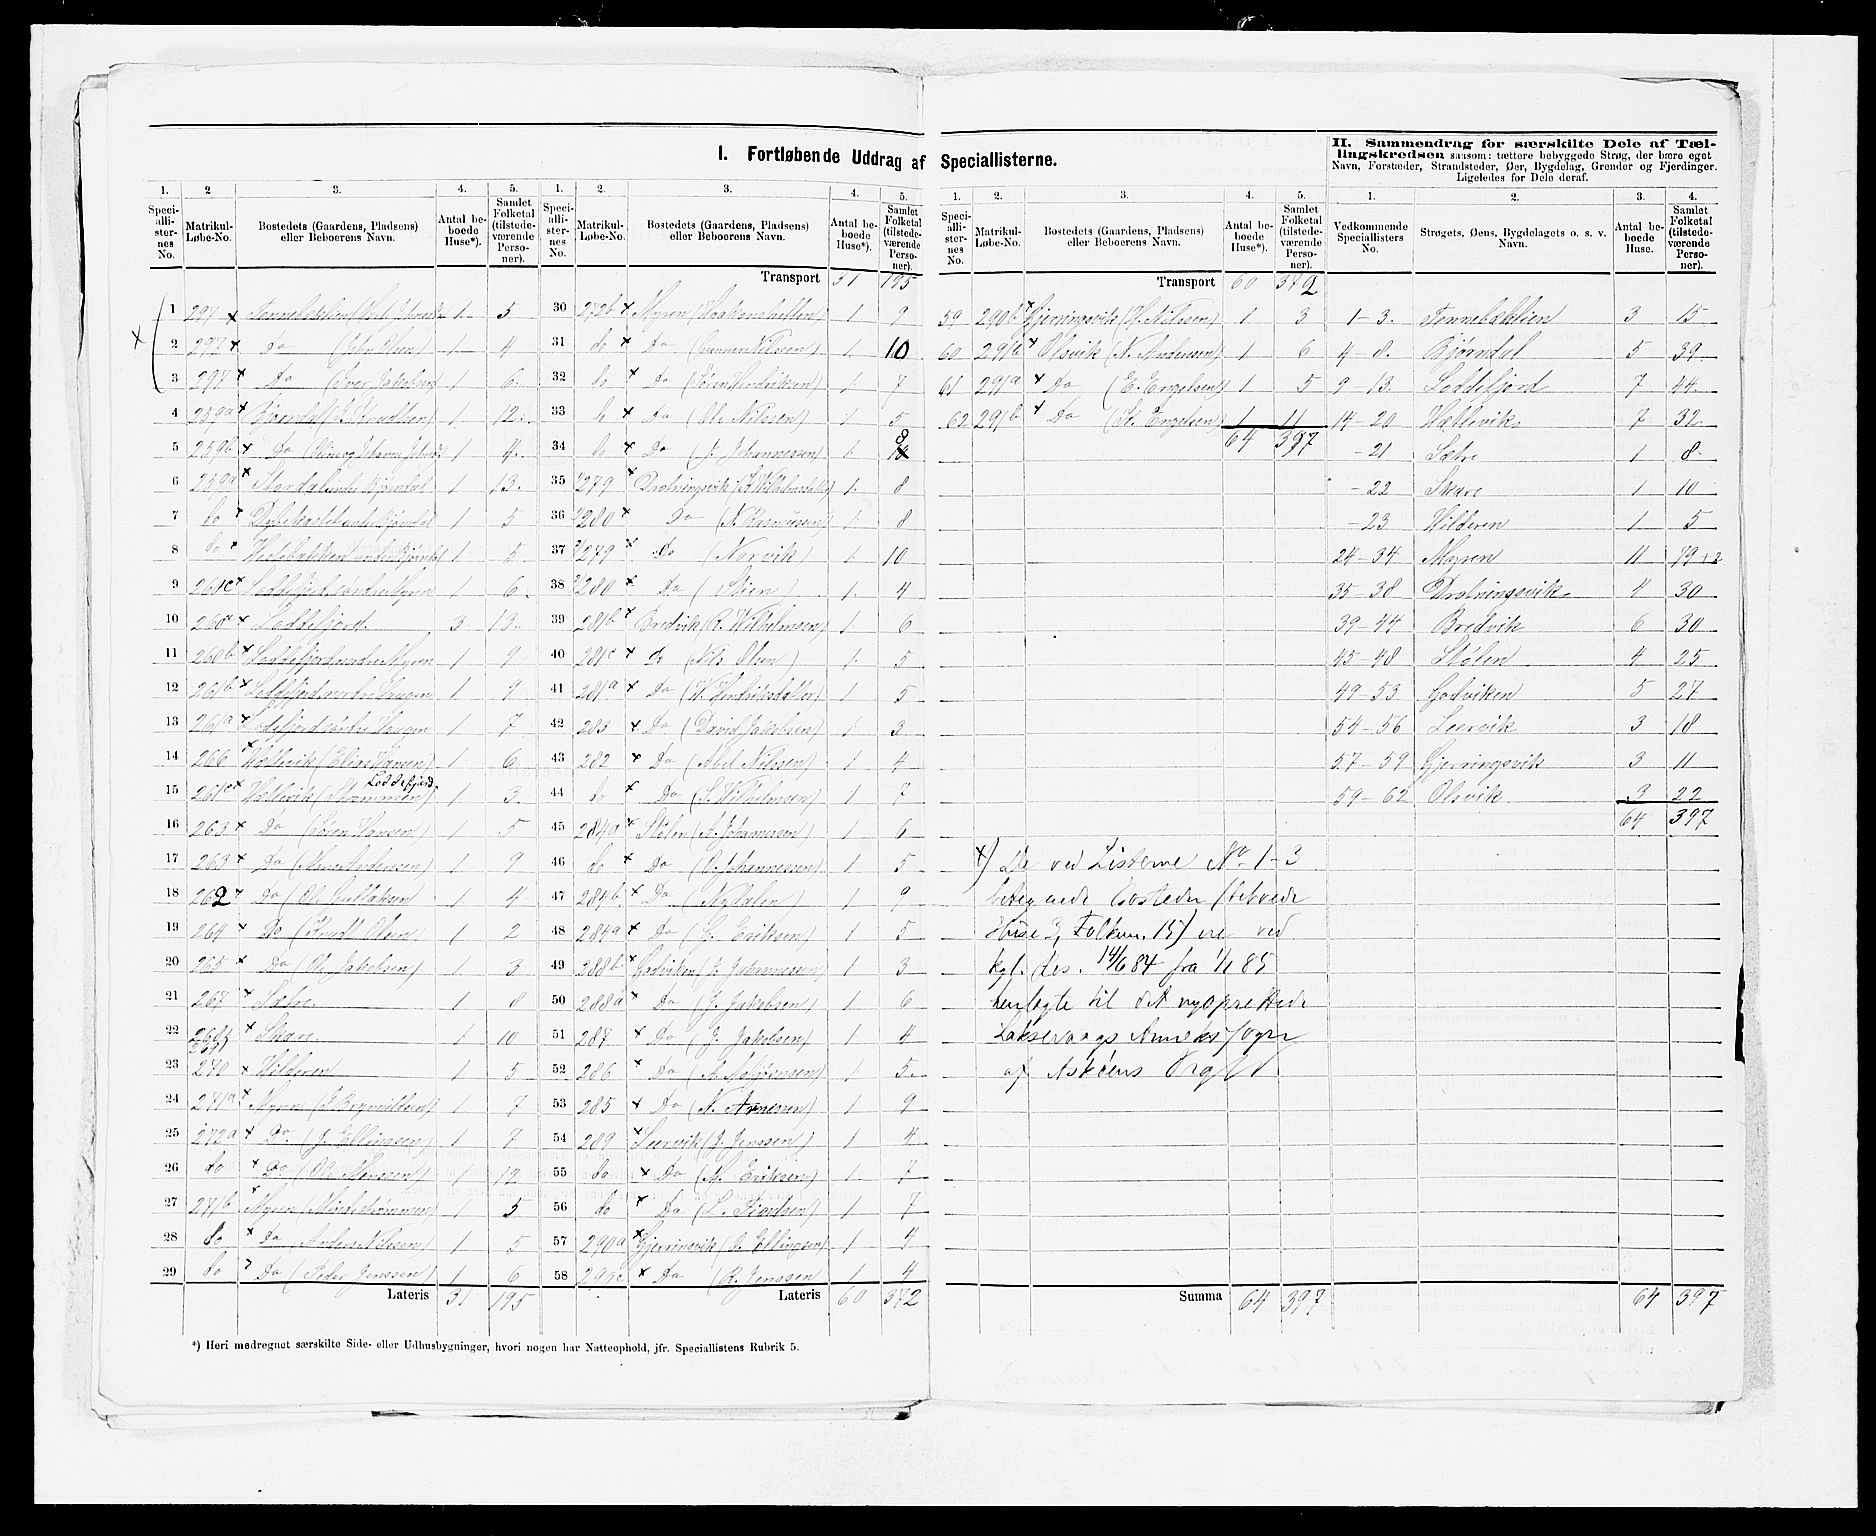 I. Fortløbende Uddrag af Speciallisterne.
II. Sammendrag for særskilte Dele af Tællingskredsen saasom: tættere bebyggede Strøg, der bære eget
Navn, Forstæder, Strandsteder, Øer, Bygdelag, Grender og Fjerdinger.
Ligeledes for Dele deraf.
1. 2. 3. 4. 5. 1. 2. 3. 4. 5. 1. 2. 3. 4. 5. 1. 2. 3. 4.
Speciallisternes No. Matrikul-Løbe-No. Bostedets (Gaardens, Pladsens) eller Beboerens Navn. Antal beboede Huse*). Samlet Folketal (tilstedeværende Personer).
Speciallisternes No. Matrikul-Løbe-No. Bostedets (Gaardens, Pladsens) eller Beboerens Navn. Antal beboede Huse*). Samlet Folketal (tilstedeværende Personer).
Transport 31 195
1 297 x 1 5
2 297 x Do (John Olsen) 1 4
3 297 x Do (Iver Jakobsen) 1 6
4 259a x Bjørndal 1 12
5 259b x Do 1 4
6 259a x Stordal under Bjørndal 1 13
7 do x under Bjørndal 1 5
8 do x under Bjørndal 1 5
9 261c x Loddefjord søndre Myren 1 6
10 260a x Loddefjord 3 13
11 260b x Loddefjord nordre Myren 1 9
12 261b x Loddefjord nordre Haugen 1 9
13 261a x Loddefjord søndre Haugen 1 7
14 266 x Hætlevik (Elias Hansen) 1 6
15 261c x Hætlevik Loddefjord 1 3
16 263 x Do (Søren Hansen) 1 5
17 263 x Do (Mons Anderssen) 1 9
18 262 x Do (Ole Gulla​ksen) 1 4
19 264 x Do (Knudt Olsen) 1 2
20 265 x Do (Ol. Jakobsen) 1 3
21 267 x Sætre 1 8
22 268 269 x Skare 1 10
23 270 x Hilderen 1 5
24 271a x Myren 1 7
25 272a x Do (J. Ellingsen) 1 7
26 do x Do (Ole Monssen) 1 12
27 271b x Myren 1 5
28 do x Do (Anders Nilssen) 1 5
29 do Do (Peder Jenssen) 1 6
Lateris 31 195
30 272b x Myren (Haakonshellen) 1 9
31 do x Do (Gunner Nilssen) 1 10
32 do x Do (Søren Hendriksen) 1 7
33 do x Do (Ole Nilssen) 1 5
34 do x Do (J. Johannessen) 1 8
35 279 x Drotningsvik 1 8
36 280 x Do (N. Rasmussen) 1 8
37 279 x Do (Narvik) 1 10
38 280 x Do (Stien) 1 4
39 281b x Bredvik (R. Wilhelmsen) 1 6
40 281c x Do (Nils Olsen) 1 5
41 281a x Do (W. Hendriksdatter) 1 5
42 283 x Do (David Jakobsen) 1 3
43 282 x Do (Abel Nilssen) 1 4
44 do x Do (S. Wilhelmsen) 1 7
45 284a x Stølen (A. Johannessen) 1 6
46 do x Do (O. Johannessen) 1 5
47 284b x Do (Nydalen) 1 9
48 284a x Do (G. Eriksen) 1 5
49 288b x Godviken (J. Johannessen) 1 3
50 288a x Do (J. Jakobsen) 1 6
51 287 x Do (J. Jakobsen) 1 4
52 286 x Do 1 5
53 285 x Do (N. Arnesen) 1 9
54 289 x Leervik (J. Jenssen) 1 4
55 do x Do (M. Eriksen) 1 7
56 do x Do 1 7
57 290a x Gjerringsvik (O. Ellingsen) 1 4
58 290c x Do (R. Jenssen 1 4
Lateris 60 372
Speciallisternes No. Matrikul-Løbe-No. Bostedets (Gaardens, Pladsens) eller Beboerens Navn. Antal beboede Huse*). Samlet Folketal (tilstedeværende Personer).
Transport 60 372
59 290b x Gjerringsvik (H. Nilssen) 1 3
60 291b x Olsvik (N. Andersen) 1 6
61 291a x Do (E. Engelsen) 1 5
62 291b x Do (St. Engelsen) 1 11
64 397
x) De ved Listerne No 1-3
betegnede Bosteder (beboede
Huse 3, Folkem. 15) ere ved
kgl. Res. 14/6 84 fra 1/1 85
henlagte til det nyoprettede
Laksevaags Annekssogn
af Askøens Prgld.
Summa 64 397
Vedkommende Speciallisters No. Strøgets, Øens, Bygdelagets o. s. v. Navn. Antal beboede Huse. Samlet Folketal (tilstedeværende Personer).
1-3. Tennebæklien 3 15
4-8. Bjørndal 5 39
9-13. Loddefjord 7 44
14-20 Hætlevik 7 32
-21 Sætre 1 8
-22 Skare 1 10
-23 Hilderen 1 5
24-34 Myren 11 79+2
35-38 Drotningsvik 4 30
39-44 Bredvik 6 30
45-48 Stølen 4 25
49-53 Godviken 5 27
54-56 Leervik 3 18
57-59 Gjerringsvik 3 11
59-62 Olsvik 3 22
64 397
64 397
*) Heri medregnet særskilte Side- eller Udhusbygninger, hvori nogen har Natteophold, jfr. Speciallistens Rubrik 5.